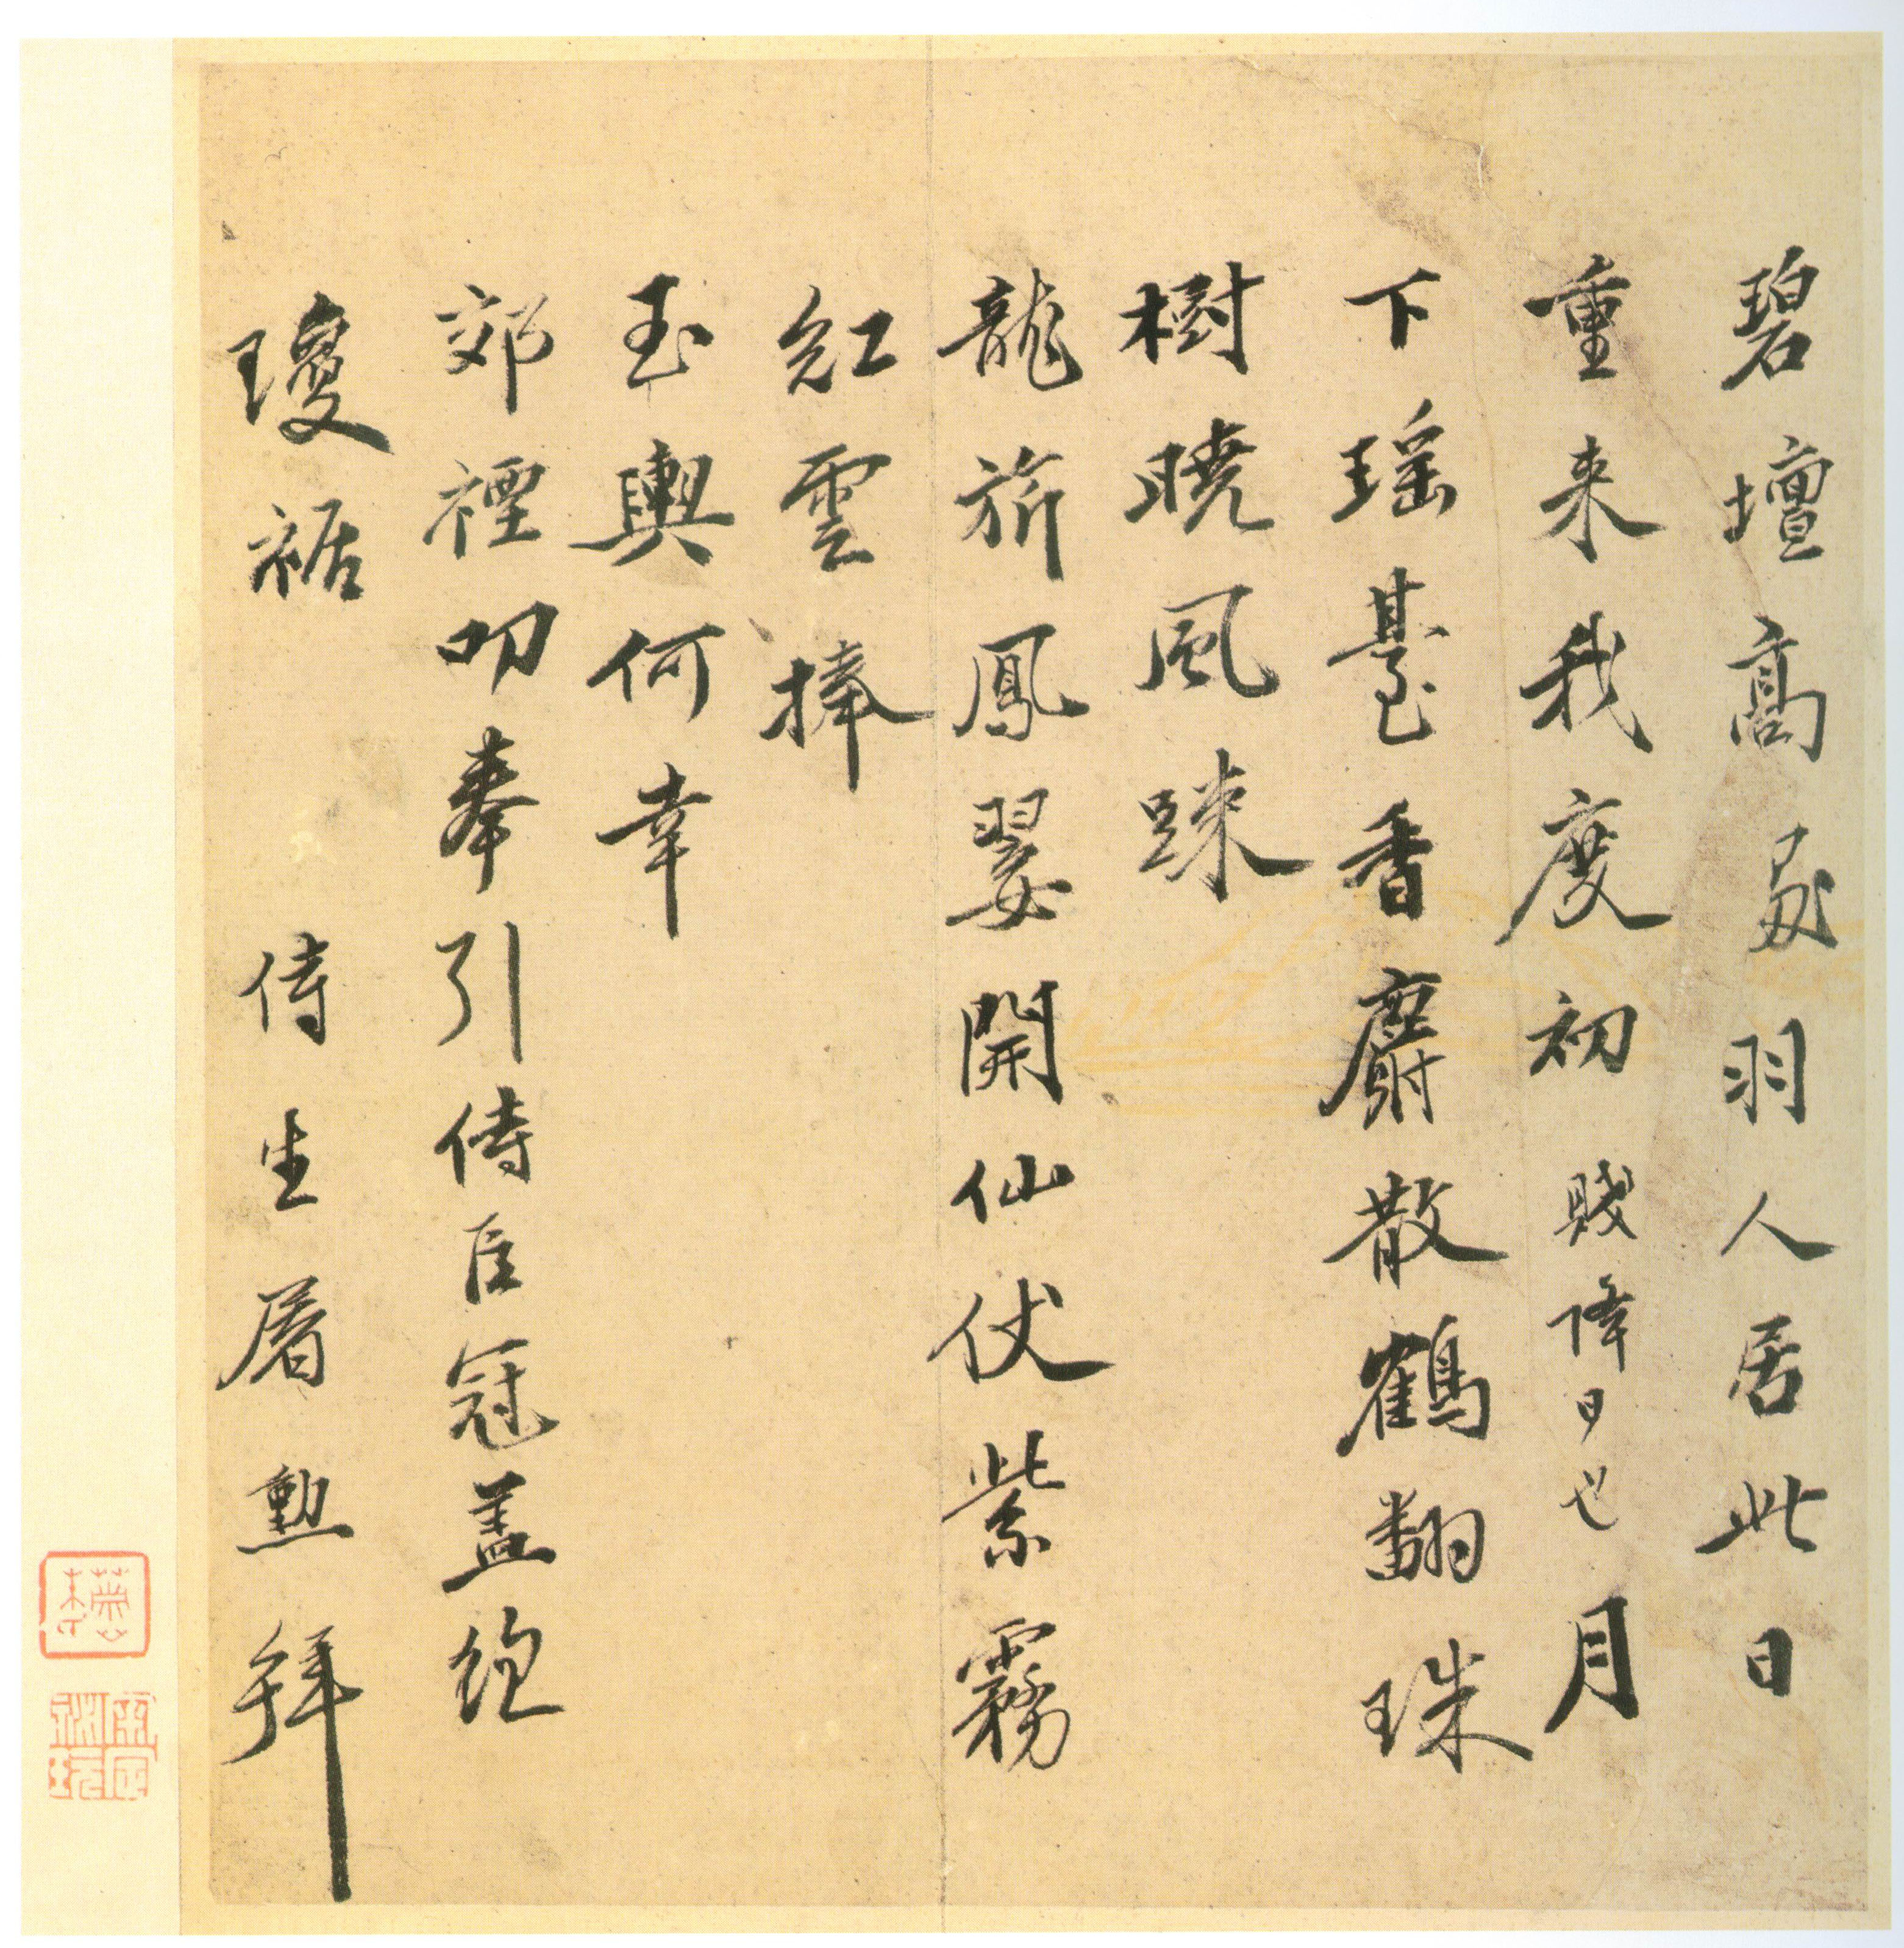 碧壇高處羽人居此日
重来我度初賤降日也月
下瑶臺香麝散鶴翻珠
樹曉風踈
龍旂鳳翣開仙仗紫霧
紅雲捧
玉輿何幸
郊禋叨奉引侍臣冠盖繞
瓊裾
侍生屠勳拜